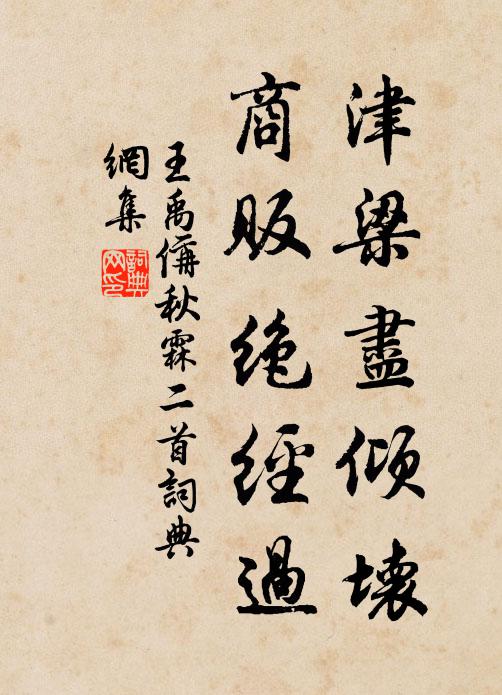 津梁盡傾壞
商販絶經過
王禹偁秋霖二首詞典
網集
詞典
网印